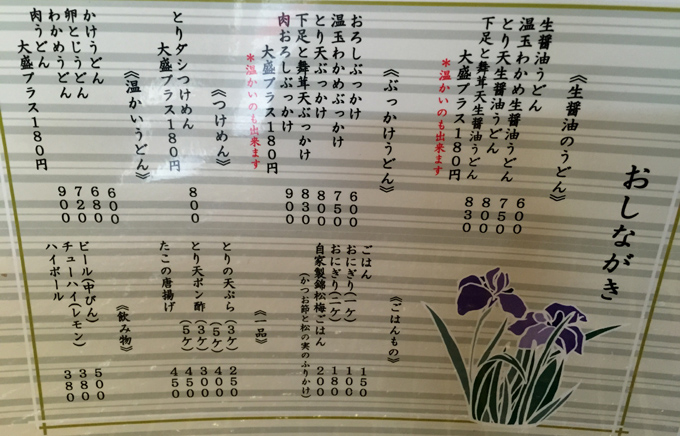 おしながき
《生醤油のうどん》
生醤油うどん 600
温玉わかめ生醤油うどん 750
とり天生醤油うどん 800
下足と舞茸天生醤油うどん 830
大盛プラス180円
*温かいのも出来ます
《ぶっかけうどん》
おろしぶっかけ 600
温玉わかめぶっかけ 750
とり天ぶっかけ 800
下足と舞茸天ぶっかけ 830
肉おろしぶっかけ 900
大盛プラス180円
*温かいのも出来ます
《つけめん》
とりダシつけめん 800
大盛プラス180円
《温かいうどん》
かけうどん 600
卵とじうどん 680
わかめうどん 720
肉うどん 900
大盛プラス180円
《ごはんもの》
ごはん 150
おにぎり(一ケ) 100
おにぎり(二ケ) 180
自家製錦松梅ごはん 200
(かつお節と松の実のふりかけ)
《一品》
とりの天ぷら (3ケ) 250
(5ケ) 400
とり天ポン酢 (3ケ) 300
(5ケ) 450
たこの唐揚げ 450
《飲み物》
ビール(中びん) 500
チューハイ(レモン) 380
ハイボール 380